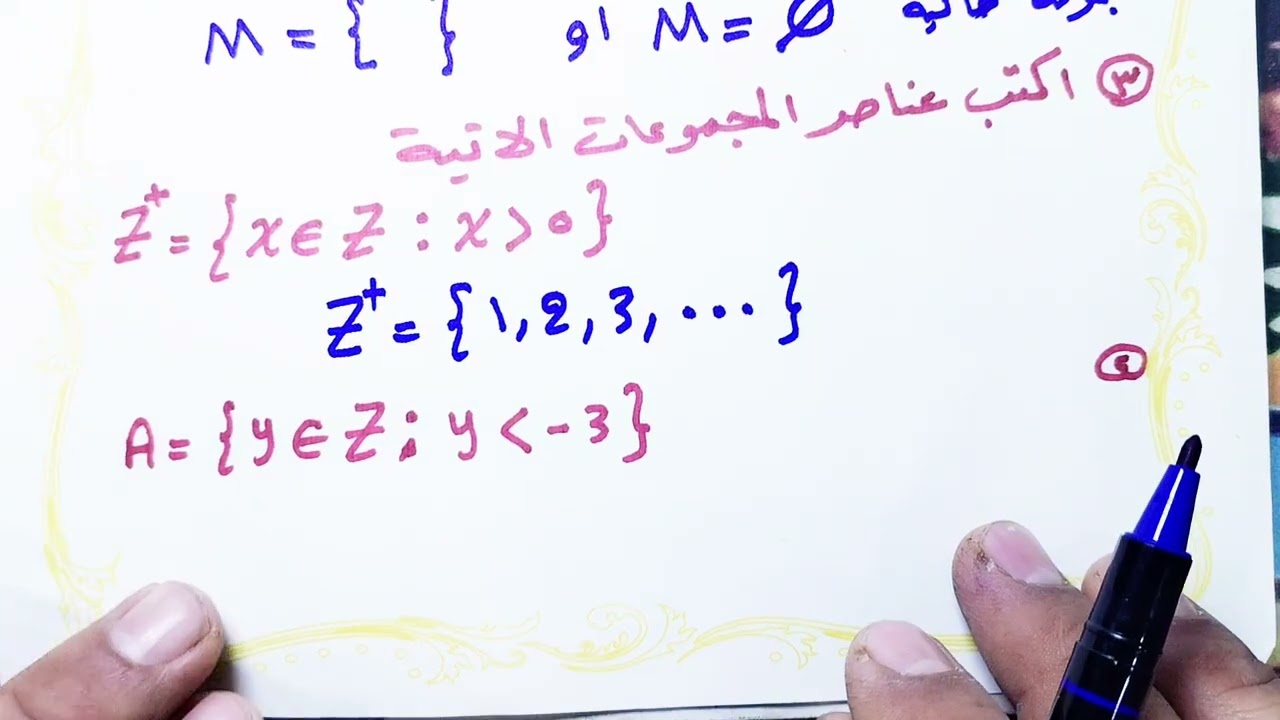 M = { } او M = ∅
③ اكتب عناصر المجموعات الاتية
Z⁺ = {x ∈ Z : x > 0}
Z⁺ = {1, 2, 3, ...}
④
A = {y ∈ Z ; y < -3}